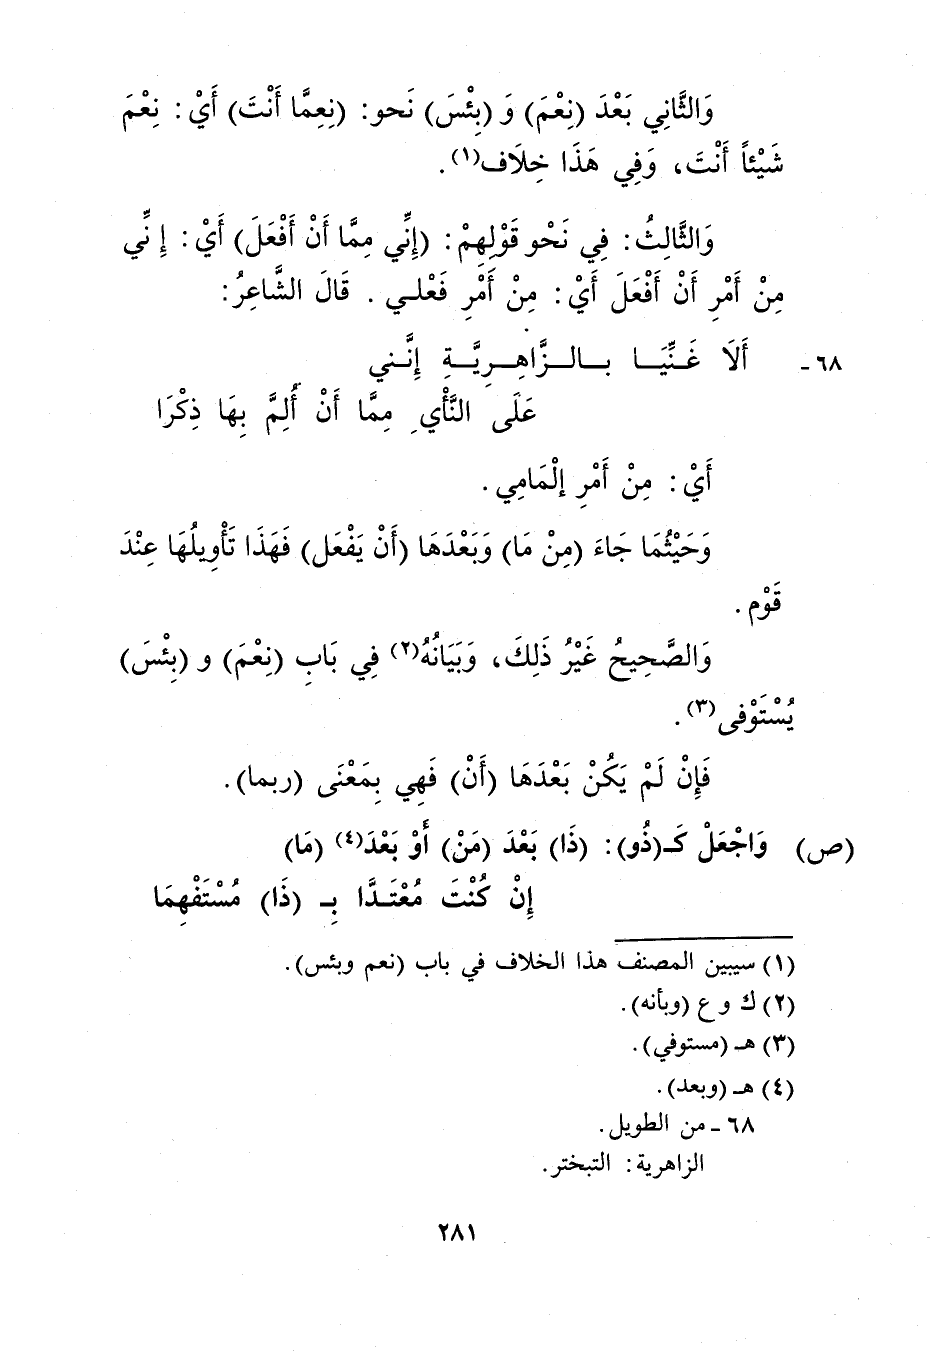 وَالثَّانِي بَعْدَ (نِعْمَ) وَ (بِئْسَ) نَحو: (نِعِمَّا أَنْتَ) أَيْ: نِعْمَ
شَيْئاً أَنْتَ، وَفِي هَذَا خِلَاف(١).
وَالثَّالِثُ: فِي نَحْو قَوْلِهِمْ: (إِنِّي مِمَّا أَنْ أَفْعَلَ) أَيْ: إِنِّي
مِنْ أَمْرِ أَنْ أَفْعَلَ أَيْ: مِنْ أَمْرِ فَعْلي. قَالَ الشَّاعِرُ:
٦٨ـ أَلَا غَنِّيَا بالزَّاهِرِيَّةِ إِنَّني
عَلَى النَّأْيِ مِمَّا أَنْ أُلِمَّ بِهَا ذِكْرَا
أَيْ: مِنْ أَمْرِ إلْمَامِي.
وَحَيْثُمَا جَاءَ (مِنْ مَا) وَبَعْدَهَا (أَنْ يَفْعَل) فَهَذَا تَأْوِيلُهَا عِنْدَ
قَوْم.
وَالصَّحِيحُ غَيْرُ ذَلِكَ، وَبَيَانُهُ(٢) فِي بَابِ (نِعْمَ) و (بِئْسَ)
يُسْتَوْفى(٣).
فَإِنْ لَمْ يَكُنْ بَعْدَهَا (أَنْ) فَهِي بِمَعْنَى (ربما).
(ص) وَاجْعَلْ كَـ(ذُو): (ذَا) بَعْدَ (مَنْ) أَوْ بَعْدَ(٤) (مَا)
إِنْ كُنْتَ مُعْتَدًّا بِـ (ذَا) مُسْتَفْهِمَا
(١) سيبين المصنف هذا الخلاف في باب (نعم وبئس).
(٢) ك و ع (وبأنه).
(٣) هـ (مستوفي).
(٤) هـ (وبعد).
٦٨ ـ من الطويل.
الزاهرية: التبختر.
٢٨١